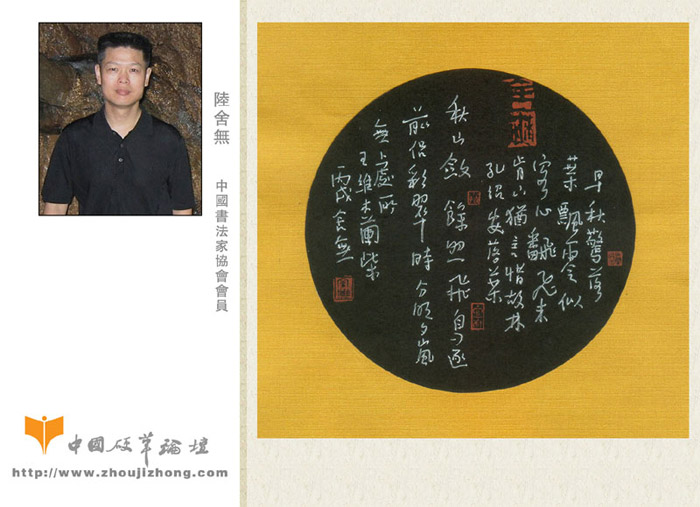 陸舍無
中國書法家協會會員
早秋驚落
葉飄零似
客心翻飛未
肯下猶言惜故林
孔紹安落葉
秋山斂餘照飛鳥逐
前侶彩翠時分明夕嵐
無處所
王維木蘭柴
丙戌舍無
中國硬筆論壇
http://www.zhoujizhong.com